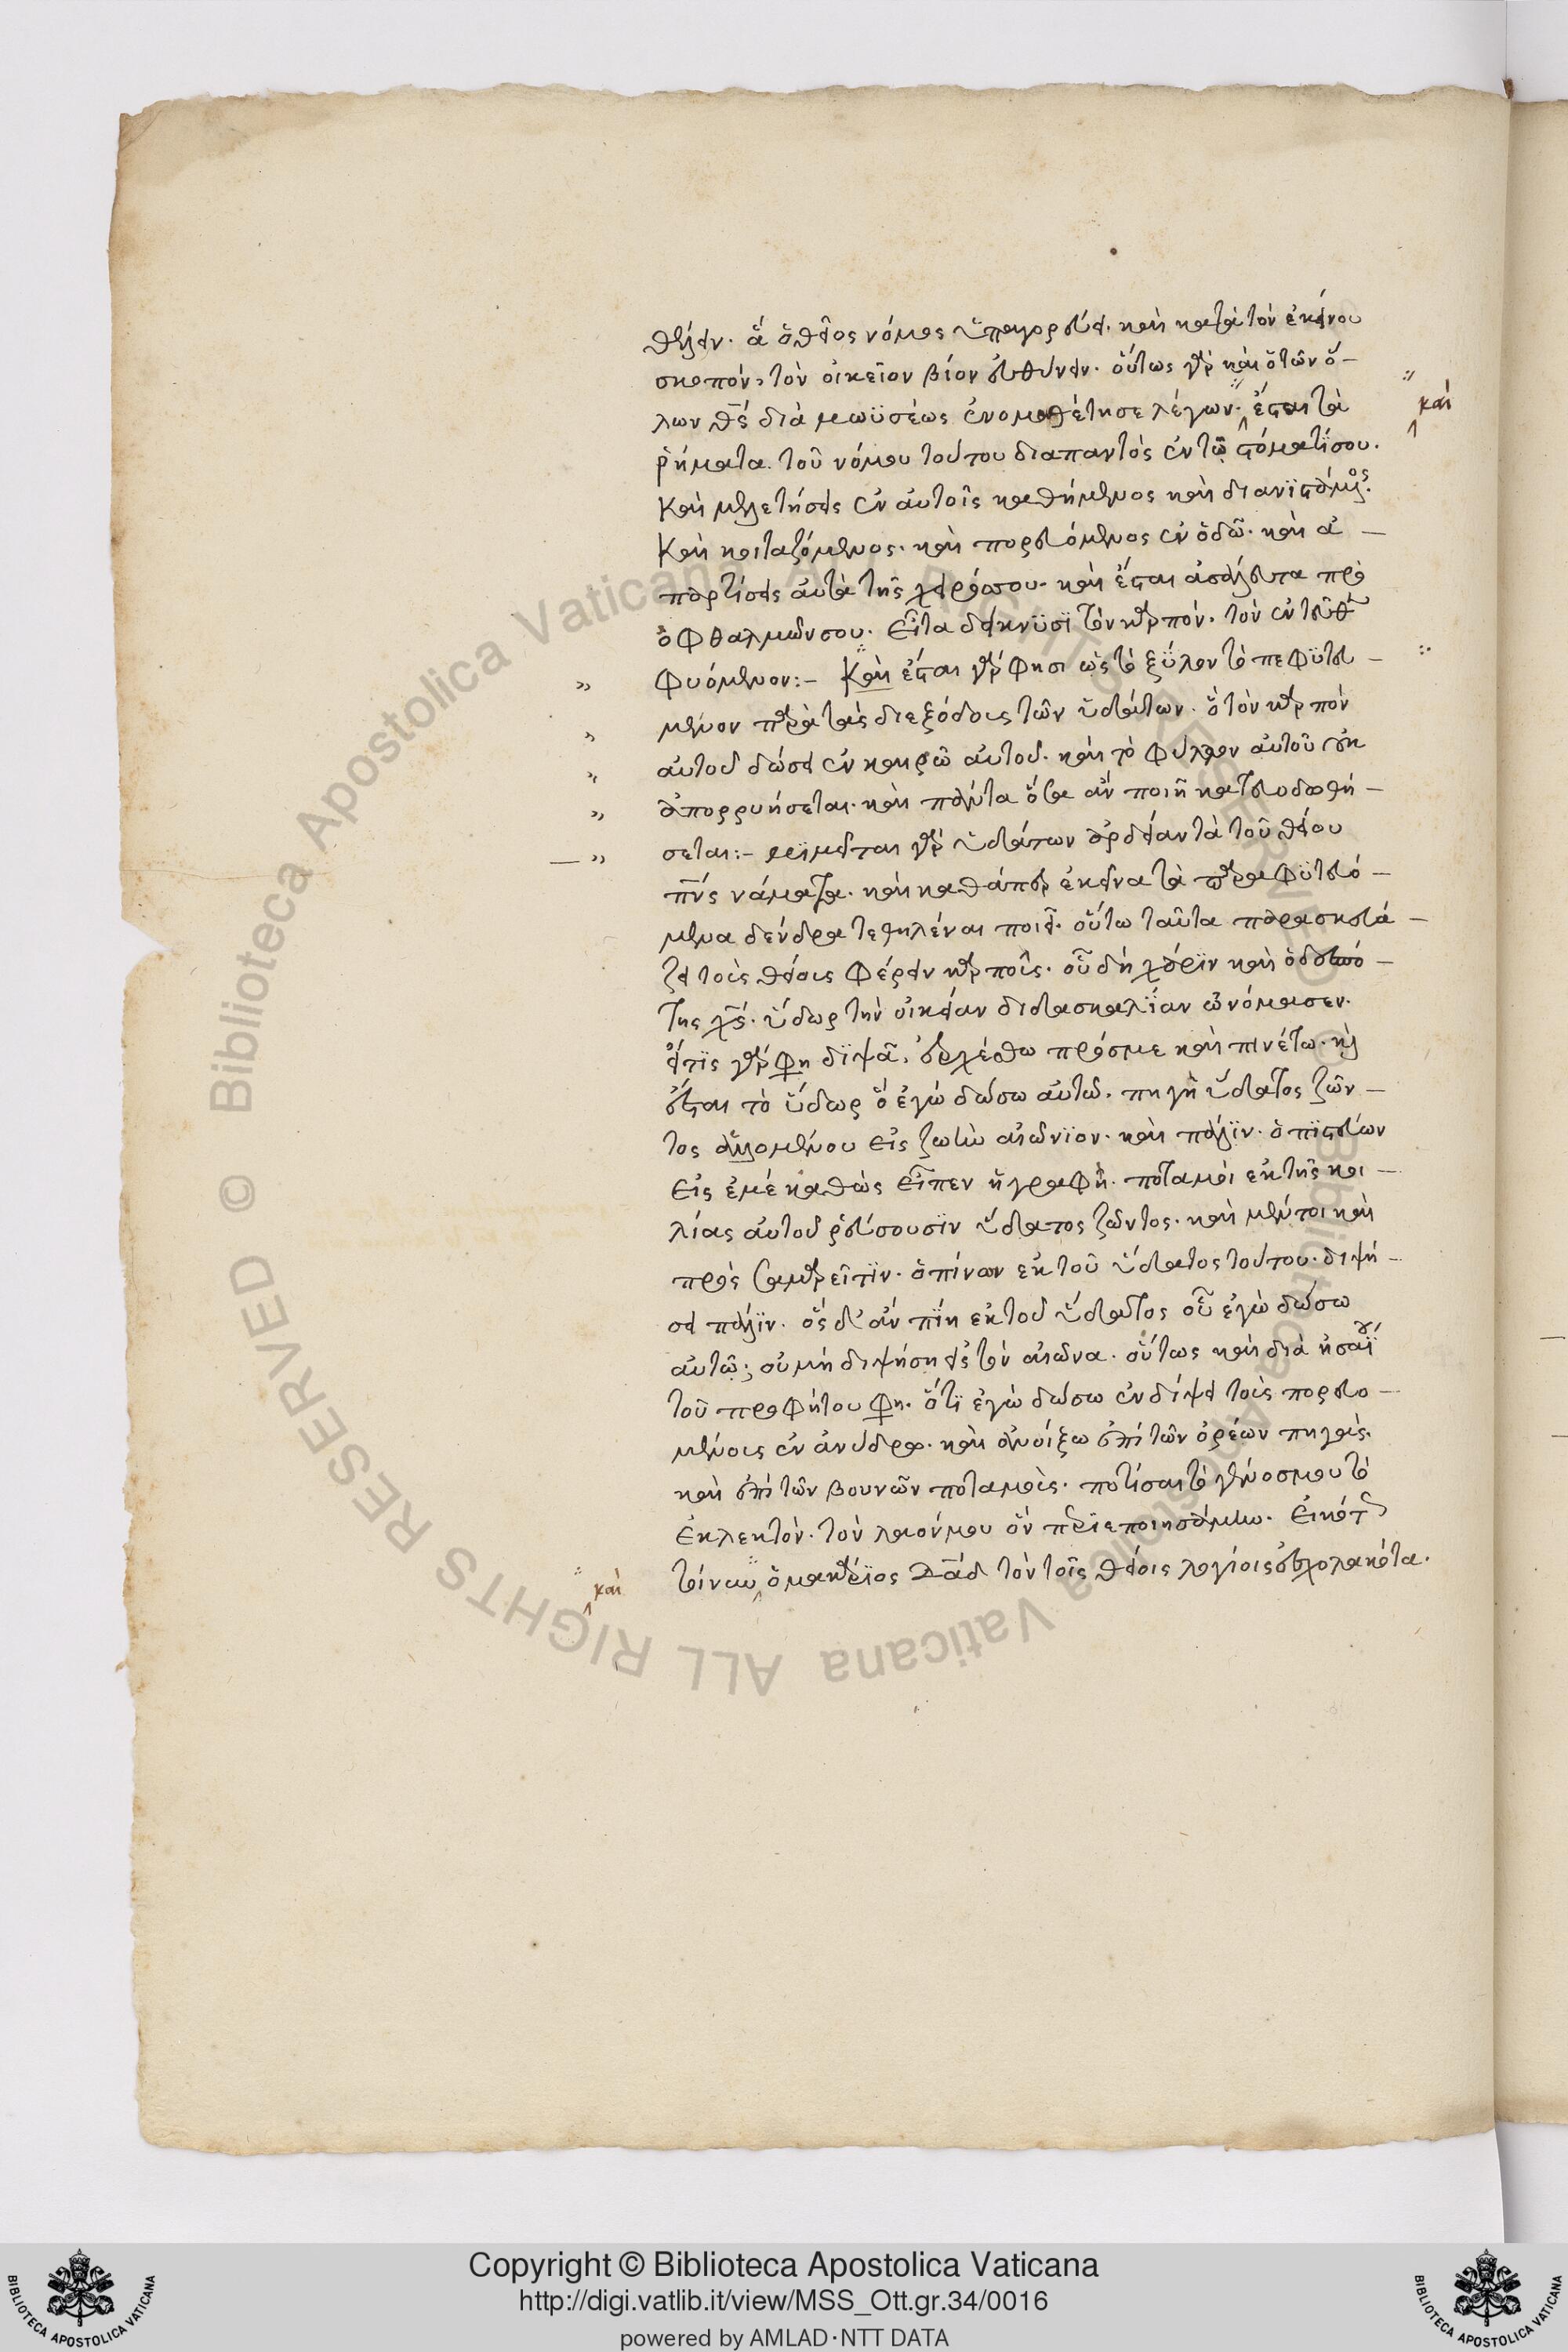 θέλειν. ἃ ὁ θεῖος νόμος ὑπαγορεύει. καὶ κατὰ τὸν ἐκείνου
σκοπόν, τὸν οἰκεῖον βίον εὐθύνειν. οὕτως γὰρ καὶ ὁ τῶν ὅ-
λων θς διὰ μωϋσέως ἐνομοθέτησε λέγων. ἔσται τὰ
καὶ
ῥήματα τοῦ νόμου τούτου διαπαντὸς ἐν τῷ στόματί σου.
Καὶ μελετήσεις ἐν αὐτοῖς καθήμενος καὶ διανιστάμενος.
Καὶ κοιταζόμενος. καὶ πορευόμενος ἐν ὁδῷ. καὶ ἀ-
παρτίσεις αὐτὰ τῆς χειρός σου. καὶ ἔσται ἀσάλευτα πρὸ
ὀφθαλμῶν σου. Εἶτα δείκνυσι τὸν καρπόν. τὸν ἐντεῦθεν
φυόμενον:- Καὶ ἔσται γάρ φησι ὡς τὸ ξύλον τὸ πεφυτευ-
μένον παρὰ τὰς διεξόδους τῶν ὑδάτων. ὃ τὸν καρπὸν
αὐτοῦ δώσει ἐν καιρῷ αὐτοῦ. καὶ τὸ φύλλον αὐτοῦ οὐκ
ἀπορρυήσεται. καὶ πάντα ὅσα ἂν ποιῇ κατευοδωθή-
σεται:- μιμεῖται γὰρ ὑδάτων ἀρδείαν τὰ τοῦ θείου
πνς νάματα. καὶ καθάπερ ἐκεῖνα τὰ παραφυτευό-
μενα δένδρα τεθηλέναι ποιεῖ. οὕτω ταῦτα παρασκευά-
ζει τοὺς θείους φέρειν καρπούς. οὗ δὴ χάριν καὶ ὁ δεσπό-
της χς. ὕδωρ τὴν οἰκείαν διδασκαλίαν ὠνόμασεν.
εἴ τις γάρ φη διψᾷ, ἐρχέσθω πρός με καὶ πινέτω. καὶ
ἔσται τὸ ὕδωρ ὃ ἐγὼ δώσω αὐτῷ. πηγὴ ὕδατος ζῶν-
τος ἁλλομένου εἰς ζωὴν αἰώνιον. καὶ πάλιν. ὁ πιστεύων
εἰς ἐμὲ καθὼς εἶπεν ἡ γραφή. ποταμοὶ ἐκ τῆς κοι-
λίας αὐτοῦ ῥεύσουσιν ὕδατος ζῶντος. καὶ μέντοι καὶ
πρὸς σαμαρεῖτιν. ὁ πίνων ἐκ τοῦ ὕδατος τούτου. διψή-
σει πάλιν. ὃς δ' ἂν πίῃ ἐκ τοῦ ὕδατος οὗ ἐγὼ δώσω
αὐτῷ, οὐ μὴ διψήσῃ εἰς τὸν αἰῶνα. οὕτως καὶ διὰ ἡσαΐου
τοῦ προφήτου φη. ὅτι ἐγὼ δώσω ἐν δίψει τοῖς πορευο-
μένοις ἐν ἀνύδρῳ. καὶ ἀνοίξω ἐπὶ τῶν ὀρέων πηγάς.
καὶ ἐπὶ τῶν βουνῶν ποταμούς. ποτίσαι τὸ γένος μου τὸ
ἐκλεκτόν. τὸν λαόν μου ὃν περιεποιησάμην. Εἰκότως
καὶ
τοίνυν ὁ μακάριος Δαδ τὸν τοῖς θείοις λογίοις ἐσχολακότα.
Copyright © Biblioteca Apostolica Vaticana
http://digi.vatlib.it/view/MSS_Ott.gr.34/0016
powered by AMLAD·NTT DATA
BIBLIOTECA APOSTOLICA VATICANA
BIBLIOTECA APOSTOLICA VATICANA
© Biblioteca Apostolica Vaticana ALL RIGHTS RESERVED
© Biblioteca Apostolica Vaticana ALL RIGHTS RESERVED